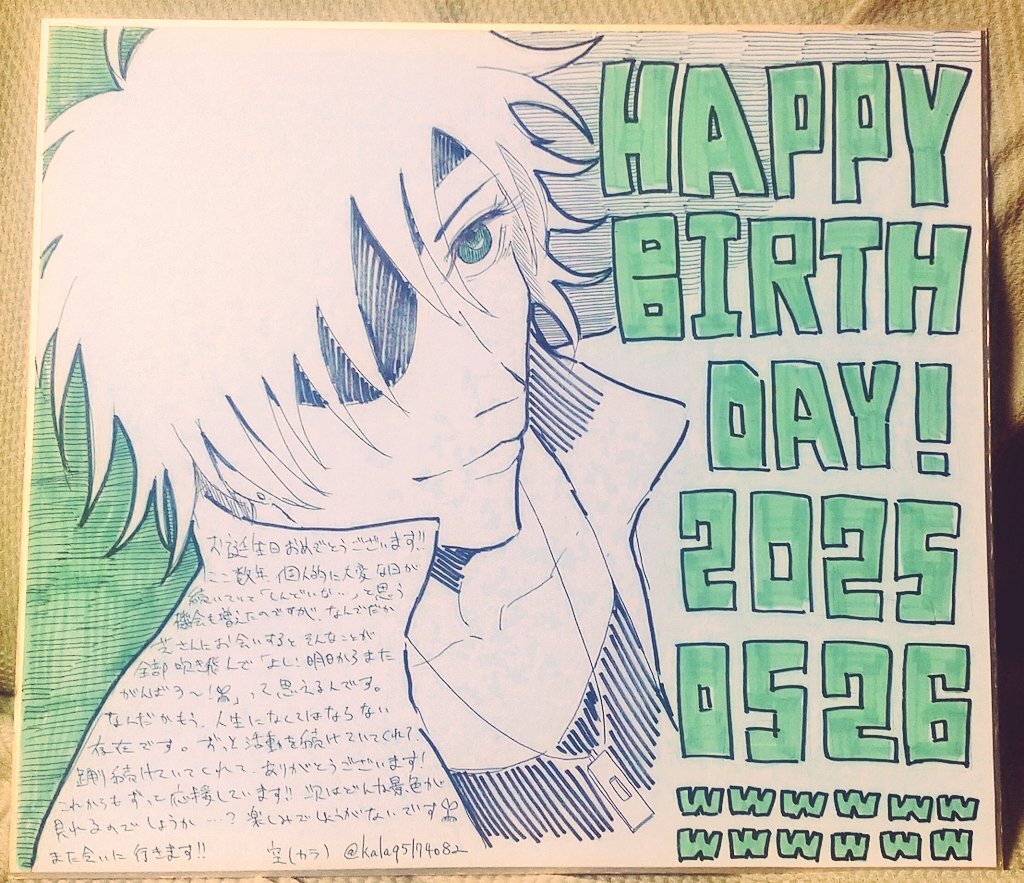 HAPPY
BIRTH
DAY!
2025
0526
WWWWWW
WWWWWW
お誕生日おめでとうございます!!
ここ数年、個人的に大変な日が
続いていて「しんどいなぁ」と思う
機会も増えたのですが、なんでだか
さんにお会いするとそんなことが
全部吹き飛んで「よし!明日からまた
がんばる〜!」って思えるんです。
なんだかもう、人生になくてはならない
存在です。ずっと活動を続けていてくれて、
踊り続けていてくれて、ありがとうございます!
これからもずっと応援しています!!次はどんな景色が
見れるのでしょうか…?楽しみでしょうがないです
また会いに行きます!!
空(カラ) @kala95174082